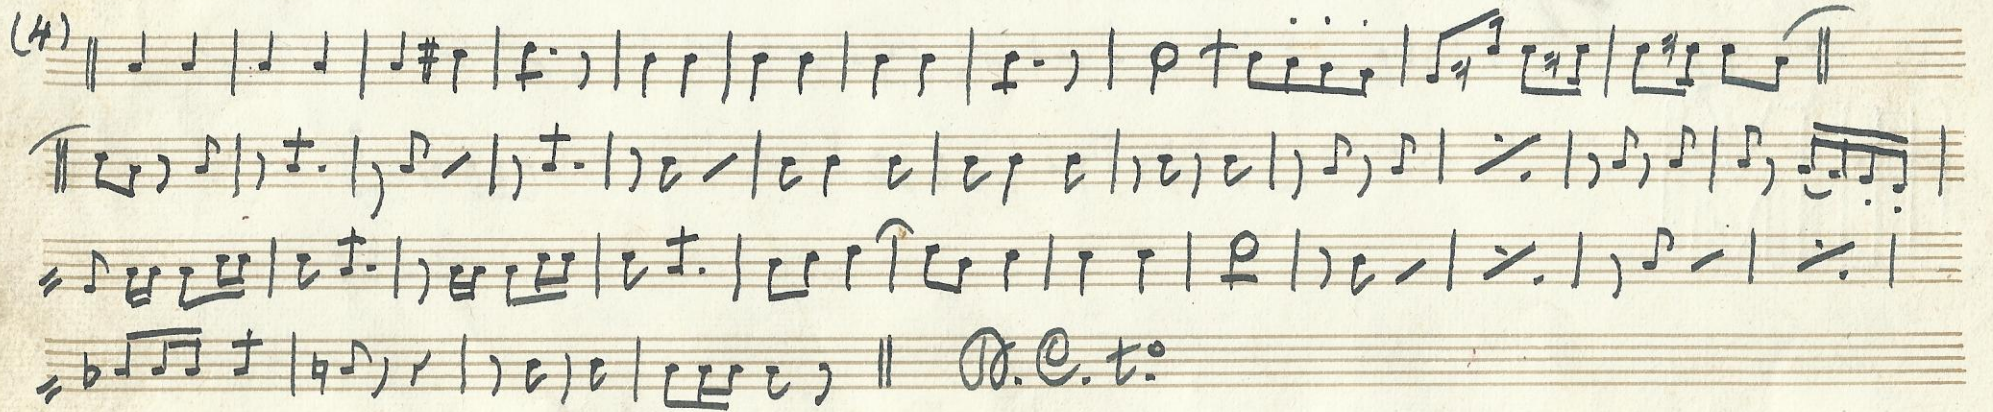 (4)
D. C. t.º